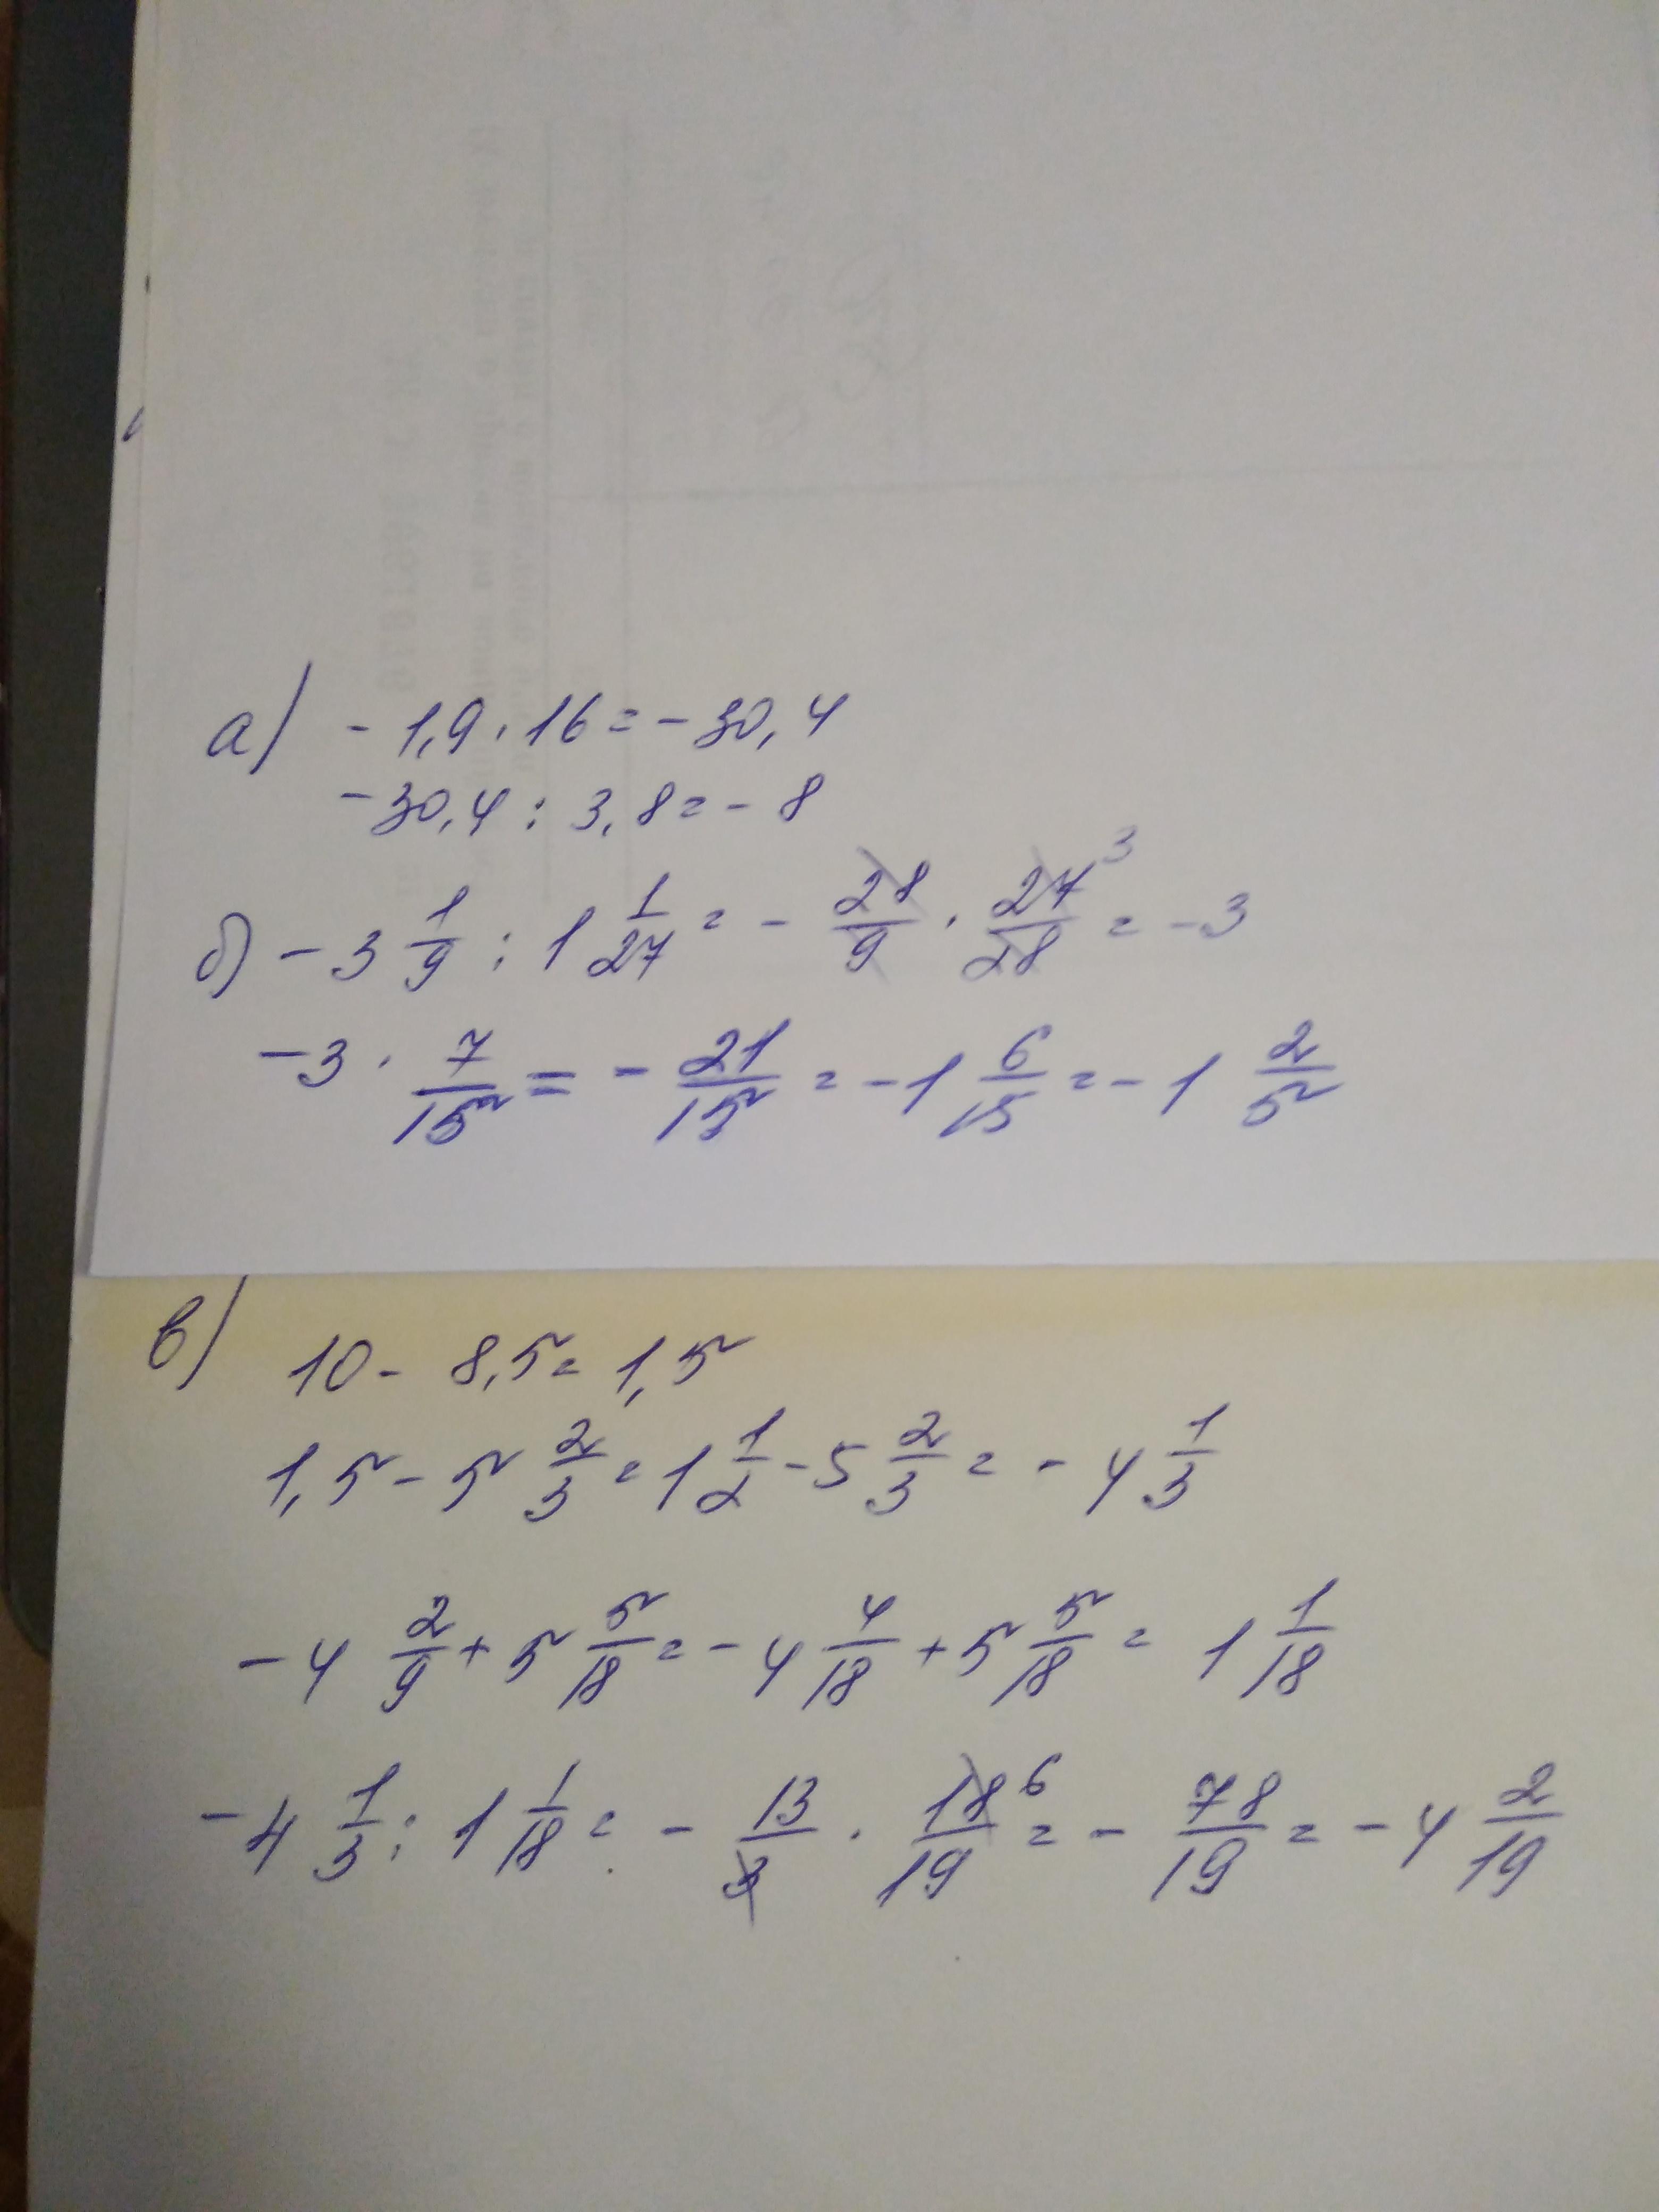 а) - 1,9 · 16 = - 30,4
- 30,4 : 3,8 = - 8
б) - 3 1/9 : 1 1/27 = - 28/9 · 27/28 3 = - 3
- 3 · 7/15 = - 21/15 = - 1 6/15 = - 1 2/5
в) 10 - 8,5 = 1,5
1,5 - 5 2/3 = 1 1/2 - 5 2/3 = - 4 1/3
- 4 2/9 + 5 5/18 = - 4 4/18 + 5 5/18 = 1 1/18
- 4 1/3 : 1 1/18 = - 13/3 · 18/19 6 = - 78/19 = - 4 2/19